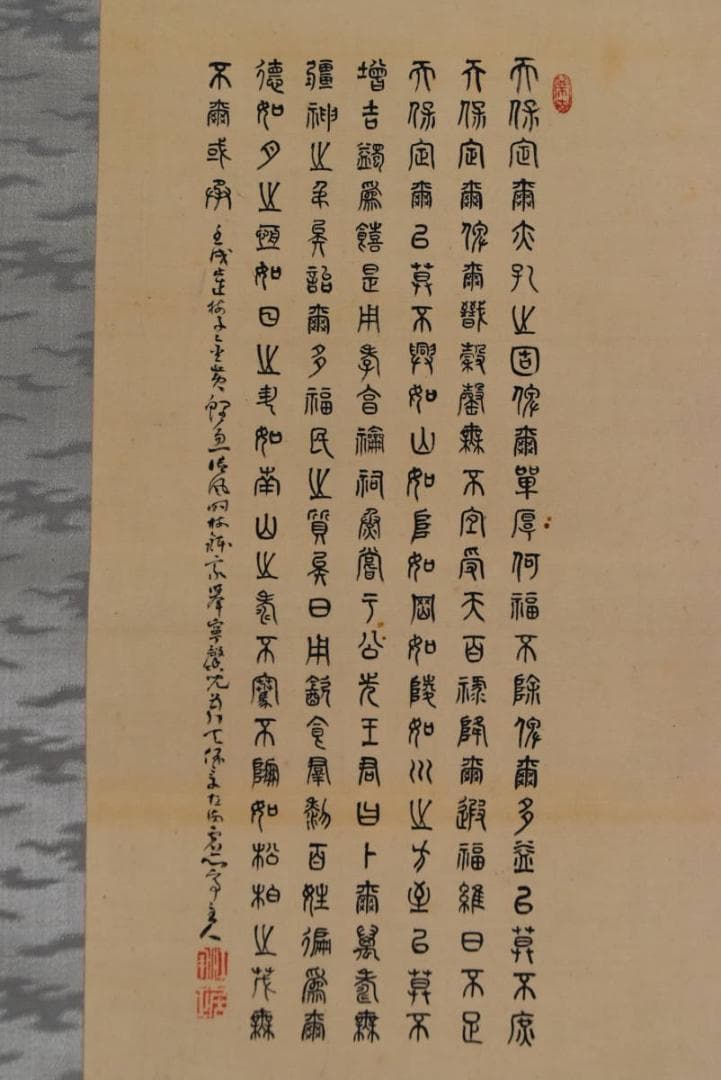 天保定爾亦孔之固俾爾單厚何福不除俾爾多益以莫不庶
天保定爾俾爾戩穀罄無不宜受天百祿降爾遐福維日不足
天保定爾以莫不興如山如阜如岡如陵如川之方至以莫不
增吉蠲為饎是用孝享禴祠烝嘗于公先王君曰卜爾萬壽無
疆神之弔矣詒爾多福民之質矣日用飲食羣黎百姓徧為爾
德如月之恆如日之升如南山之壽不騫不崩如松柏之茂無
不爾或承 壬戌 主人